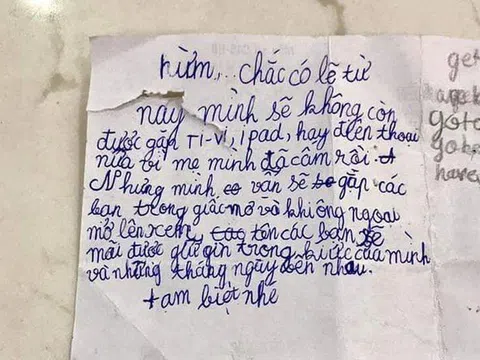 hừm... chắc có lẽ từ
nay mình sẽ không còn
được gặp Ti-vi, ipad, hay điện thoại
nữa vì mẹ mình đã cấm rồi.
Nhưng mình vẫn sẽ gặp các
bạn trong giấc mơ và khi ông ngoại
mở lên xem, tên các bạn sẽ
mãi được giữ gìn trong kí ức của mình
và những tháng ngày bên nhau.
tạm biệt nhé
get
go
have